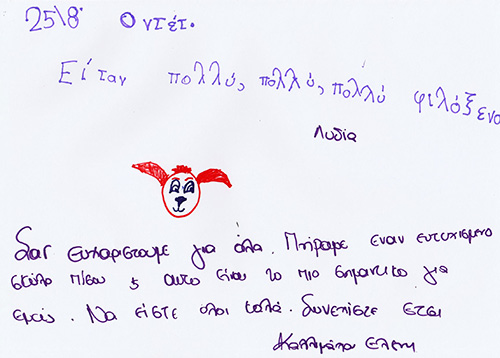 25\8· Ο ντέτ.
Είταν πολλύ, πολλύ, πολλύ φιλόξενο
Λυδία
Σας ευχαριστουμε για όλα. Πήραμε εναν ευτυχισμενο
σκύλο πίσω & αυτο ειναι το πιο σημαντικο για
εμας. Να είστε όλοι καλά. Συνεχιστε ετσι
Ελενη